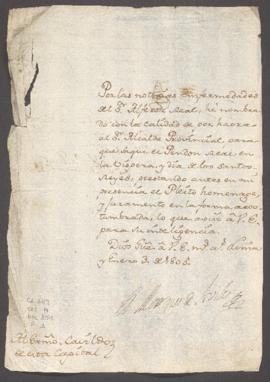 Por las notorias enfermedades
del Sr. Alferez Real, hé nombra-
do con la calidad de por haora
al Sr. Alcalde Provincial, para
que saque el Pendon Real en
la Vispera, y dia de los Santos
Reyes, prestando antes en mi
presencia el Pleito homenage,
y juramento en la forma acos-
tumbrada, lo que aviso á V.E.
para su inteligencia.
Dios gue. á V.E. ms. as. Lima
y Enero 3. de 1805.
El Marques de
Al Exmo. Cavildo
de esta Capital